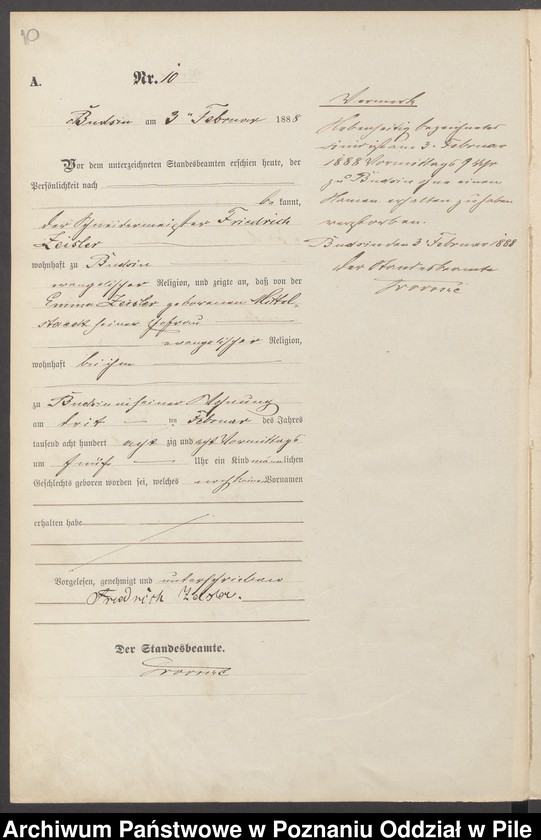 10
A.
Nr. 10
Budsin am 3ten Februar 1888
Vor dem unterzeichneten Standesbeamten erschien heute, der
Persönlichkeit nach
bekannt,
der Schneidermeister Friedrich
Zeisler
wohnhaft zu Budsin
evangelischer Religion, und zeigte an, daß von der
Emma Zeisler geborenen Mittel-
staedt seiner Ehefrau
evangelischer Religion,
wohnhaft bei ihm
zu Budsin in seiner Wohnung
am drit ten Februar des Jahres
tausend acht hundert acht zig und acht Vormittags
um fünf Uhr ein Kind männlichen
Geschlechts geboren worden sei, welches noch keinen Vornamen
erhalten habe
Vorgelesen, genehmigt und unterschrieben
Friedrich Zeisler.
Der Standesbeamte.
Vermerk
Nebenseitig bezeichnetes
Kind ist am 3. Februar
1888 Vormittags 9 Uhr
zu Budsin ohne einen
Namen erhalten zu haben
verstorben.
Budsin den 3 Februar 1888
Der Standesbeamte
Archiwum Państwowe w Poznaniu Oddział w Pile